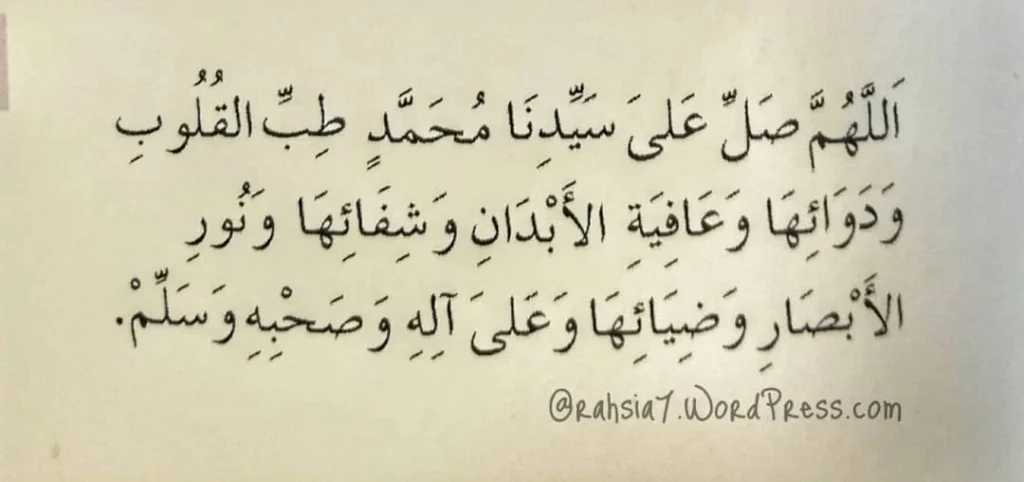 اَللَّهُمَّ صَلِّ عَلىَ سَيِّدِنَا مُحَمَّدٍ طِبِّ القُلُوبِ
وَدَوَائِهَا وَعَافِيَةِ الأَبْدَانِ وَشِفَائِهَا وَنُورِ
الأَبْصَارِ وَضِيَائِهَا وَعَلىَ آلِهِ وَصَحْبِهِ وَسَلِّمْ.
@rahsia7.WordPress.com